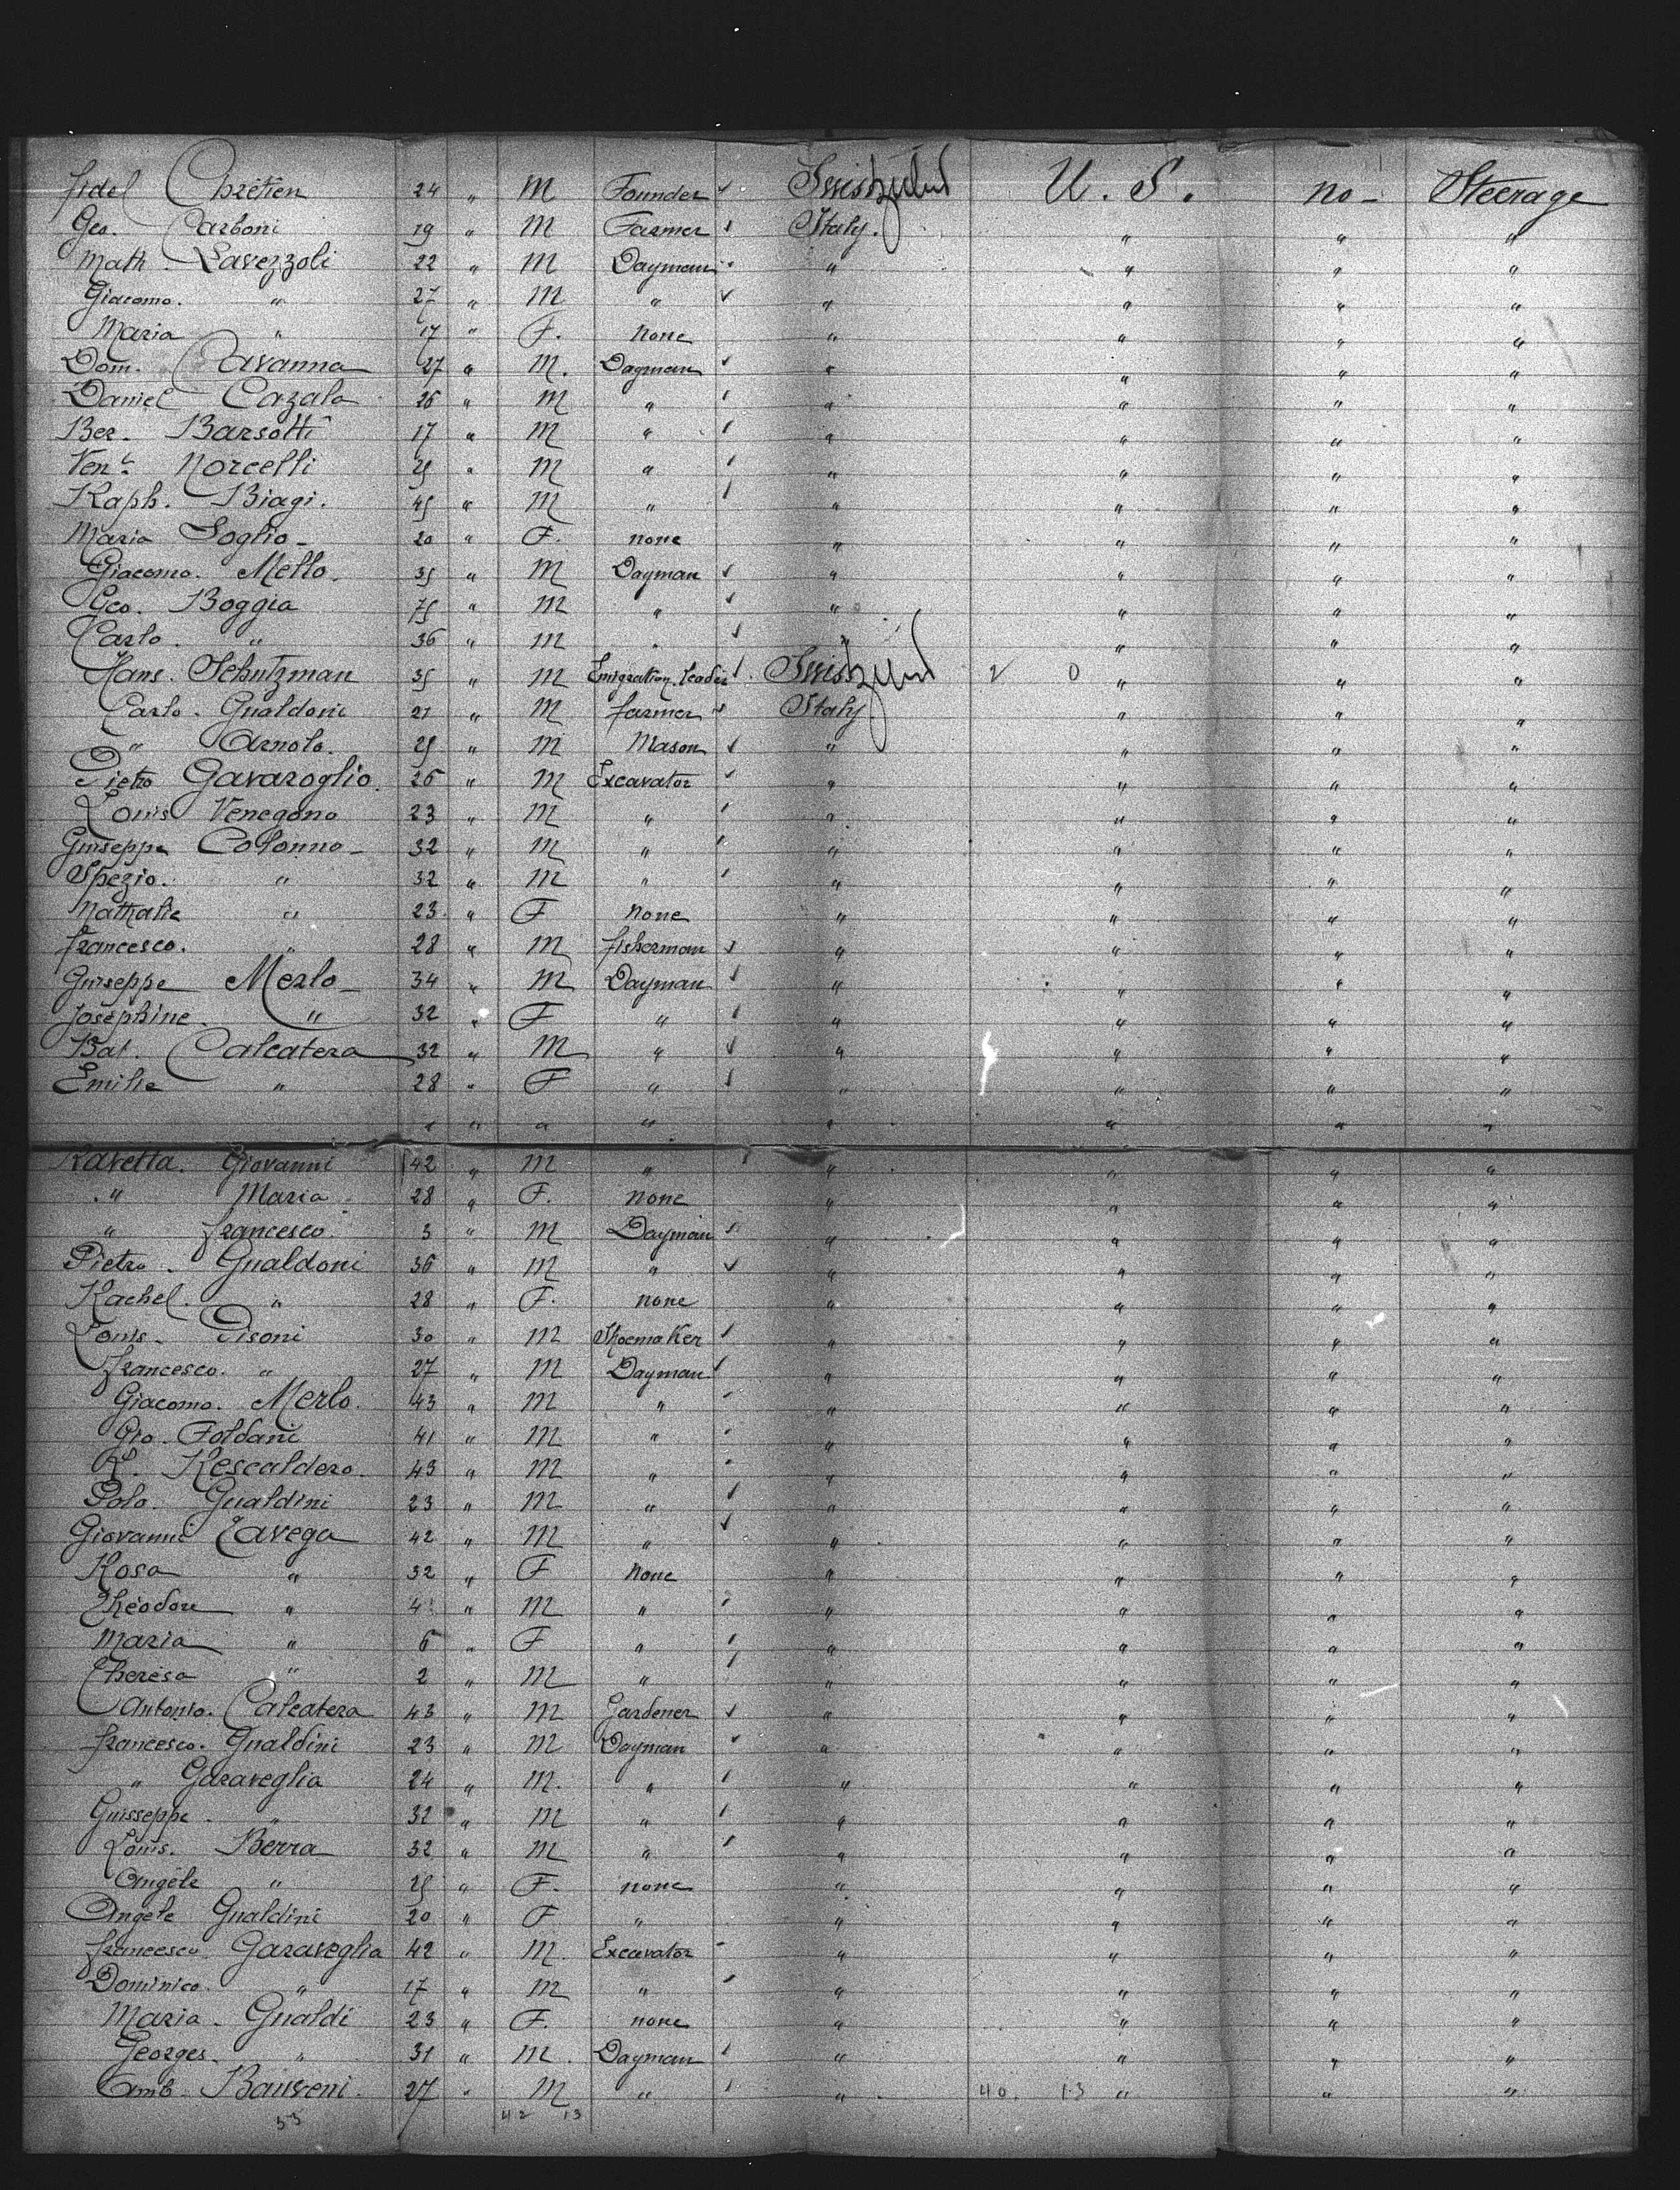 Fidel Chrétien 24 " M Founder Switzerland U. S. no - Steerage
Geo. Carboni 19 " M Farmer Italy. " " "
Math. Laverzzoli 22 " M Dayman " " " "
Giacomo. " 27 " M " " " " "
Maria " 17 " F. none " " " "
Dom. Cavanna 27 " M. Dayman " " " "
Daniel Cazala 26 " M " " " " "
Ber. Barsotti 17 " M " " " " "
Ven. Norcelli 25 " M " " " " "
Raph. Biagi. 45 " M " " " " "
Maria Soglio - 20 " F. none " " " "
Giacomo. Mello. 35 " M Dayman " " " "
Geo. Boggia 75 " M " " " " "
Carlo. " 36 " M " " " " "
Hans. Schutzman 35 " M Emigration. leader Switzerland 2 0 " " "
Carlo. Gualdoni 21 " M farmer Italy. " " "
" Arnolo. 25 " M Mason " " " "
Pietro Gavaroglio. 26 " M Excavator " " " "
Louis Venegono 23 " M " " " " "
Guiseppe Colonno - 32 " M " " " " "
Spezio. " 32 " M " " " " "
Nathalie " 23. " F none " " " "
francesco. " 28 " M fisherman " " " "
Guiseppe Merlo - 34 " M Dayman " " " "
Josephine. " 32 " F " " " " "
Bat. Calcatera 32 " M " " " " "
Emilie " 28 " F " " " " "
" " " " " " " "
Ravetta. Giovanni 42 " M " " " " "
" Maria 28 " F. none " " " "
" francesco. 3 " M Dayman " " " "
Pietro. Gualdoni 36 " M " " " " "
Rachel. " 28 " F. none " " " "
Louis. Pisoni 30 " M Shoemaker " " " "
francesco. " 27 " M Dayman " " " "
Giacomo. Merlo. 43 " M " " " " "
Gio. Foldani 41 " M " " " " "
R. Rescaldero. 43 " M " " " " "
Polo. Gualdini 23 " M " " " " "
Giovanni Cavega 42 " M " " " " "
Rosa " 32 " F None " " " "
Théodore " 4 " M " " " " "
Maria " 6 " F " " " " "
Theresa " 2 " M " " " " "
Antonio. Calcatera 43 " M Gardener " " " "
francesco. Gualdini 23 " M Dayman " " " "
" Garaveglia 24 " M. " " " " "
Guisseppe. " 32 " M " " " " "
Louis. Berra 32 " M " " " " "
Angèle " 25 " F. none " " " "
Angele Gualdini 20 " F " " " " "
francesco Garaveglia 42 " M. Excavator " " " "
Dominico. " 17 " M " " " " "
Maria. Gualdi 23 " F. none " " " "
Georges. " 31 " M. Dayman " " " "
Amb. Bauveni. 27 " M " " 40. 13 " " "
53 42 13